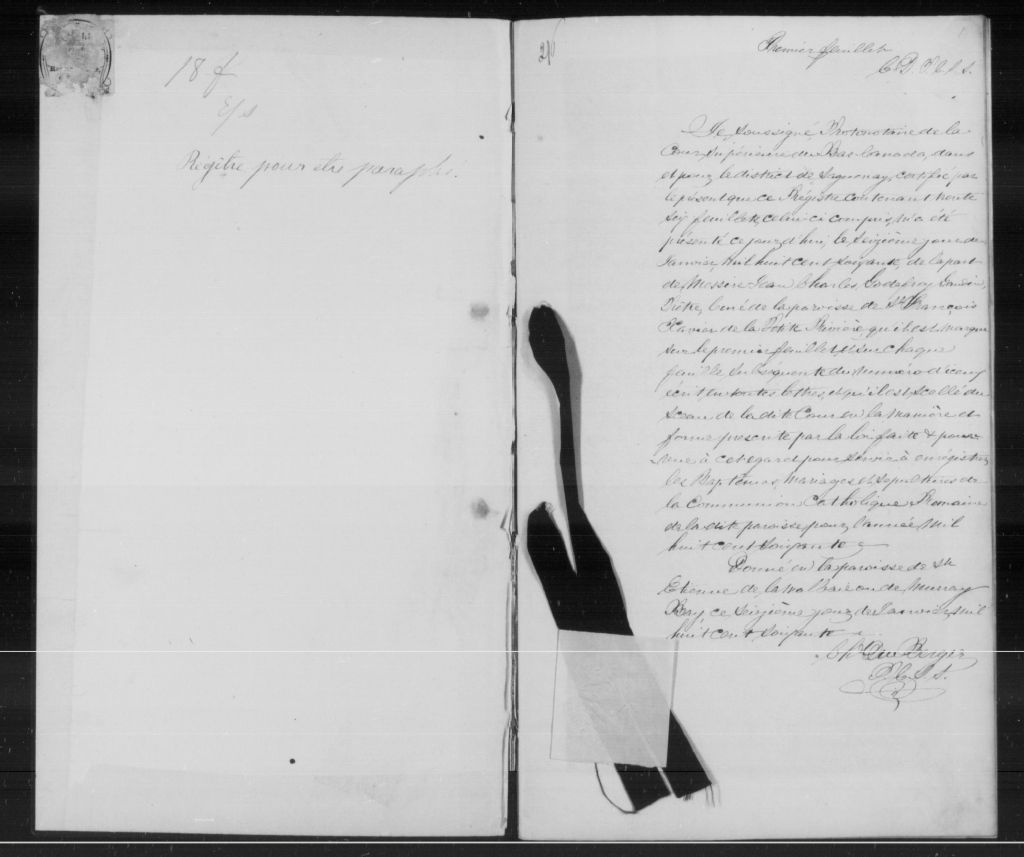 18 f
E/s
Régître pour être paraphé.
Premier feuillet
C.D. P.C.S.S.
Je, soussigné, Protonotaire de la
Cour Supérieure du Bas-Canada, dans
et pour le district de Saguenay, certifié par
le présent que ce Régistre contenant trente
six feuillets, celui-ci compris, m'a été
présenté ce jour d'hui, le seizième jour de
Janvier, mil huit cent soixante, de la part
de Messire Jean Charles Godefroy
Prêtre, Curé de la paroisse de St François
Xavier de la Petite Rivière, qu'il est marqué
sur le premier feuillet, et sur chaque
feuille subséquente du numéro d'iceux
écrit en toutes lettres, et qu'il est scellé du
Sceau de la dite Cour en la manière et
forme prescrite par la loi faite &
à cet égard pour servir à enrégistrer
les Baptêmes, Mariages et Sépultures de
la Communion Catholique Romaine
de la dite paroisse pour l'année mil
huit cent soixante
Donné en la paroisse de St
Etienne de la Mal Baie ou de Murray
Bay ce seizième jour de Janvier, mil
huit cent soixante
Chs Du Berger
P.C.S.S.